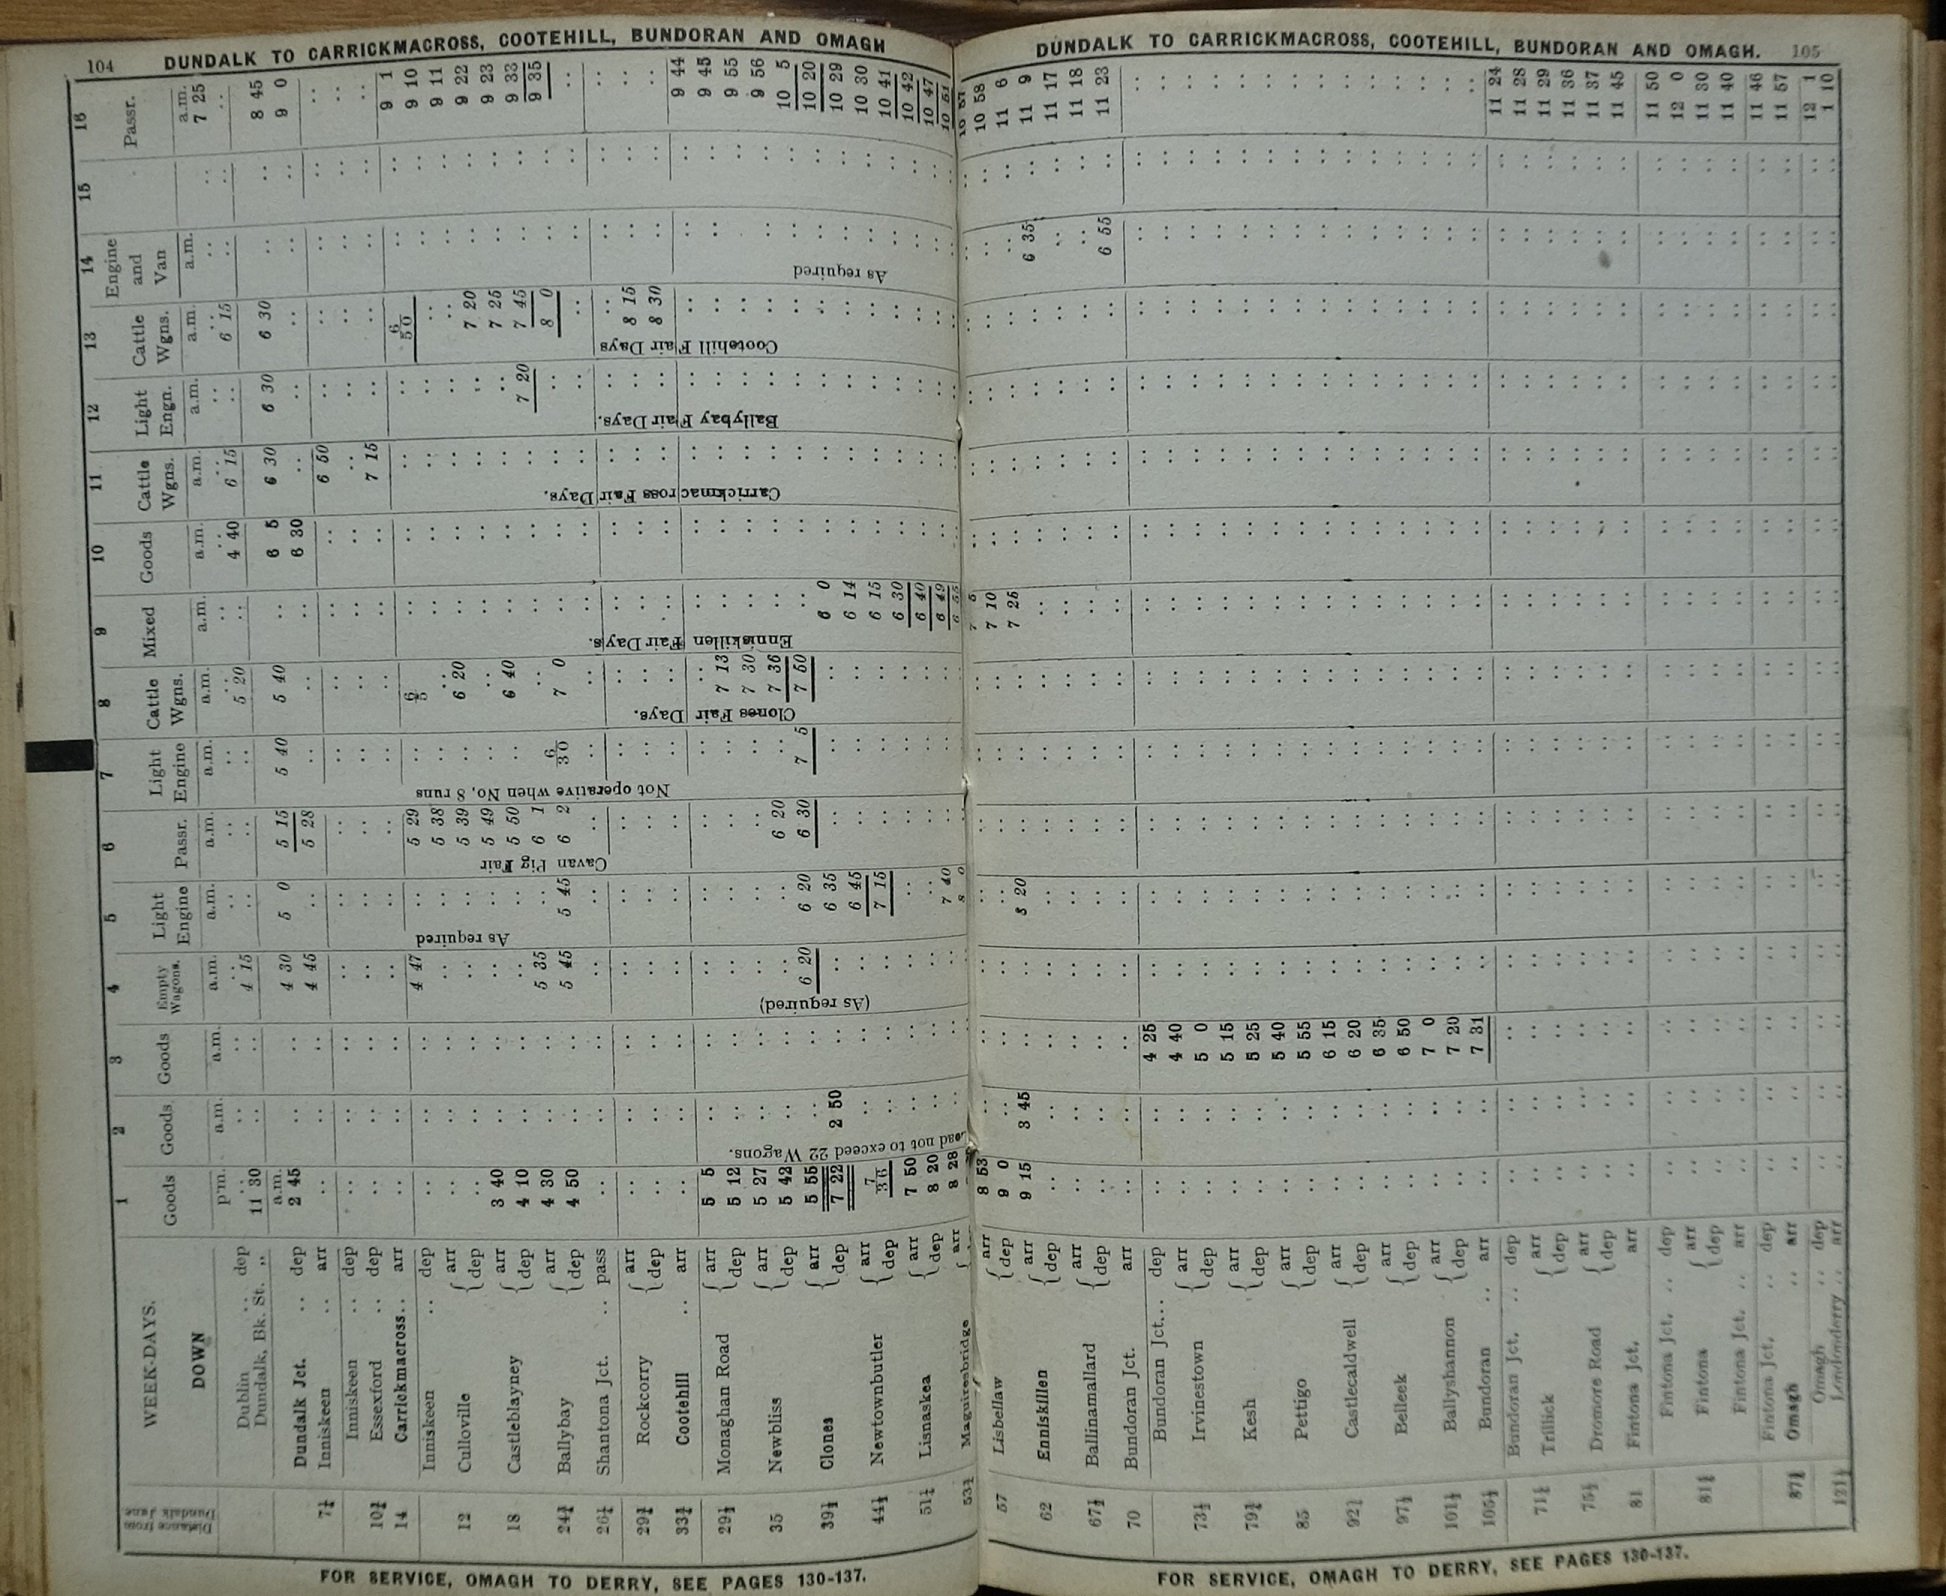 104 DUNDALK TO CARRICKMACROSS, COOTEHILL, BUNDORAN AND OMAGH
DUNDALK TO CARRICKMACROSS, COOTEHILL, BUNDORAN AND OMAGH. 105
Distance from Dundalk Junc. WEEK-DAYS. DOWN
1 2 3 4 5 6 7 8 9 10 11 12 13 14 15 16
Goods Goods Goods Empty Wagons. Light Engine Passr. Light Engine Cattle Wgns. Mixed Goods Cattle Wgns. Light Engn. Cattle Wgns. Engine and Van Passr.
p.m. a.m. a.m. a.m. a.m. a.m. a.m. a.m. a.m. a.m. a.m. a.m. a.m. a.m. a.m.
Dublin .. dep 7 25
Dundalk, Bk. St. ,, 11 30 4 15 5 20 4 40 6 15 6 15
a.m.
Dundalk Jct. .. dep 2 45 4 30 5 0 5 15 5 40 5 40 6 5 6 30 6 30 6 30 8 45
7¼ Inniskeen .. arr 4 45 5 28 6 30 9 0
Inniskeen .. dep 6 50
10¾ Essexford .. dep
14 Carrickmacross.. arr 7 15
Inniskeen .. dep 4 47 5 29 6/5 6/50 9 1
12 Culloville arr 5 38 9 10
dep 5 39 6 20 9 11
18 Castleblayney arr 3 40 5 49 7 20 9 22
dep 4 10 5 50 6 40 7 25 9 23
24¾ Ballybay arr 4 30 5 35 6 1 7 20 7 45 9 33
dep 4 50 5 45 5 45 6 2 6/30 7 0 8 0 9 35
26¼ Shantona Jct. .. pass
29¾ Rockcorry arr
dep 8 15
33¾ Cootehill .. arr 8 30
29½ Monaghan Road arr 5 5 9 44
dep 5 12 7 13 9 45
35 Newbliss arr 5 27 7 30 9 55
dep 5 42 6 20 7 36 9 56
39½ Clones arr 5 55 6 20 6 20 6 30 7 5 7 50 10 5
dep 7 22 2 50 6 35 6 0 10 20
44½ Newtownbutler arr 7/36 6 45 6 14 10 29
dep 7 15 6 15 10 30
51¼ Lisnaskea arr 7 50 6 30 10 41
dep 8 20 6 40 10 42
53¾ Maguiresbridge arr 8 28 7 40 6 49 10 47
8 0 6 55 10 51
57 Lisbellaw arr 8 53 7 5 10 57
dep 9 0 7 10 10 58
62 Enniskillen arr 9 15 3 45 8 20 7 25 11 6
dep 6 35 11 9
67½ Ballinamallard arr 11 17
dep 11 18
70 Bundoran Jct. arr 6 55 11 23
Bundoran Jct... dep 4 25
73½ Irvinestown arr 4 40
dep 5 0
79¾ Kesh arr 5 15
dep 5 25
85 Pettigo arr 5 40
dep 5 55
92¾ Castlecaldwell arr 6 15
dep 6 20
97½ Belleek arr 6 35
dep 6 50
101½ Ballyshannon arr 7 0
dep 7 20
105½ Bundoran .. arr 7 31
Bundoran Jct. .. dep 11 24
71½ Trillick arr 11 28
dep 11 29
75½ Dromore Road arr 11 36
dep 11 37
81 Fintona Jct. arr 11 45
Fintona Jct. .. dep 11 50
81½ Fintona arr 12 0
dep 11 30
Fintona Jct. .. arr 11 40
Fintona Jct. .. dep 11 46
87¾ Omagh .. arr 11 57
Omagh .. dep 12 1
121½ Londonderry .. arr 1 10
Load not to exceed 22 Wagons.
(As required)
As required
Cavan Pig Fair
Not operative when No. 8 runs
Clones Fair Days.
Enniskillen Fair Days.
Carrickmacross Fair Days.
Ballybay Fair Days.
Cootehill Fair Days
As required
FOR SERVICE, OMAGH TO DERRY, SEE PAGES 130-137.
FOR SERVICE, OMAGH TO DERRY, SEE PAGES 130-137.